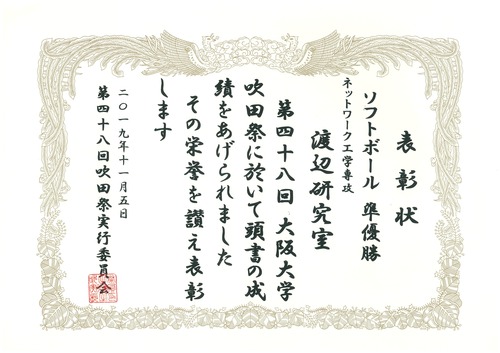 表彰状
ソフトボール 準優勝
ネットワーク工学専攻
渡辺研究室
第四十八回 大阪大学
吹田祭に於いて頭書の成
績をあげられました
その栄誉を讃え表彰
します
二〇一九年十一月五日
第四十八回吹田祭実行委員会